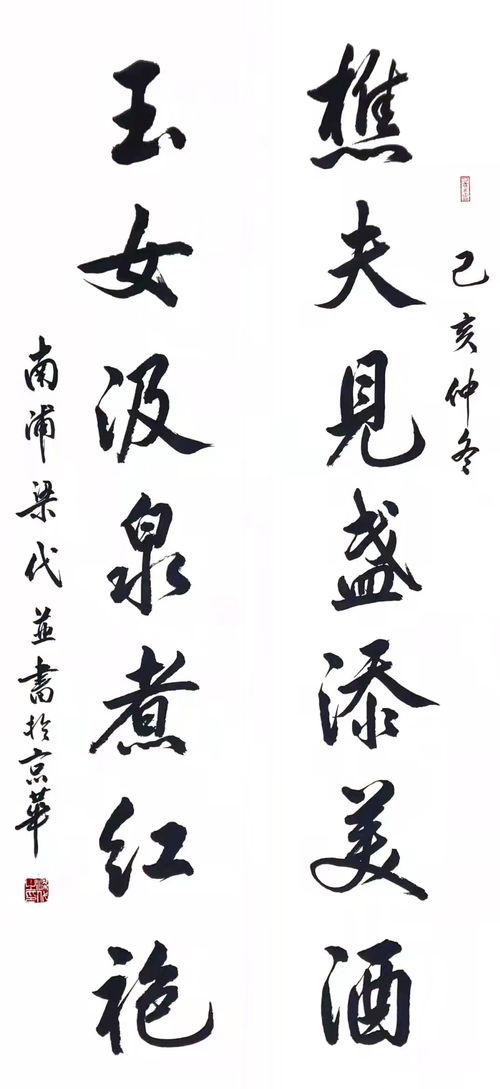 己亥仲冬
樵夫見盏添美酒
玉女汲泉煮红袍
南浦梁代並書於京華